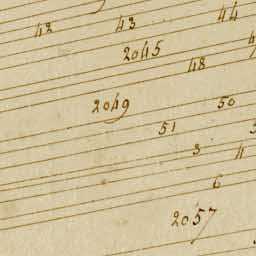 42 43 44
2045
48
2049 50
51
3 4
6
2057